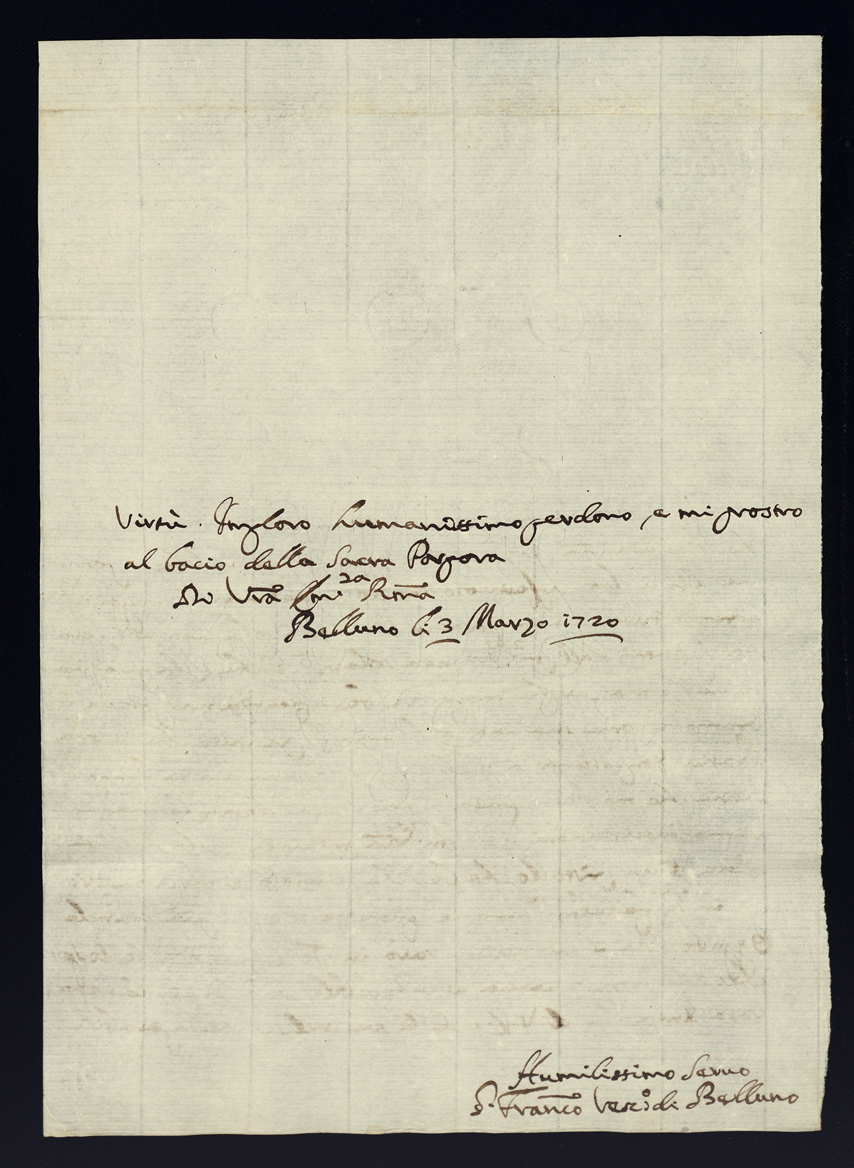 Virtù. Imploro humanissimo perdono, e mi prostro
al bacio della Sacra Porpora
Di Vrã Em.za Rma
Belluno li 3 Marzo 1720
Humilissimo Servo
F. Franc͂o Vesc.o di Belluno